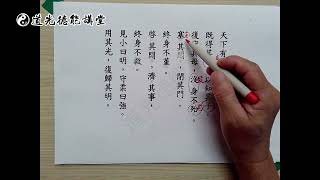 道光德能講堂
天下有
既得其
母。沒身不殆。
塞其悶，閉其門。
終身不菫。
啓其悶。濟其事，
終身不救。
見小曰明。守柔曰強。
用其光，復歸其明。